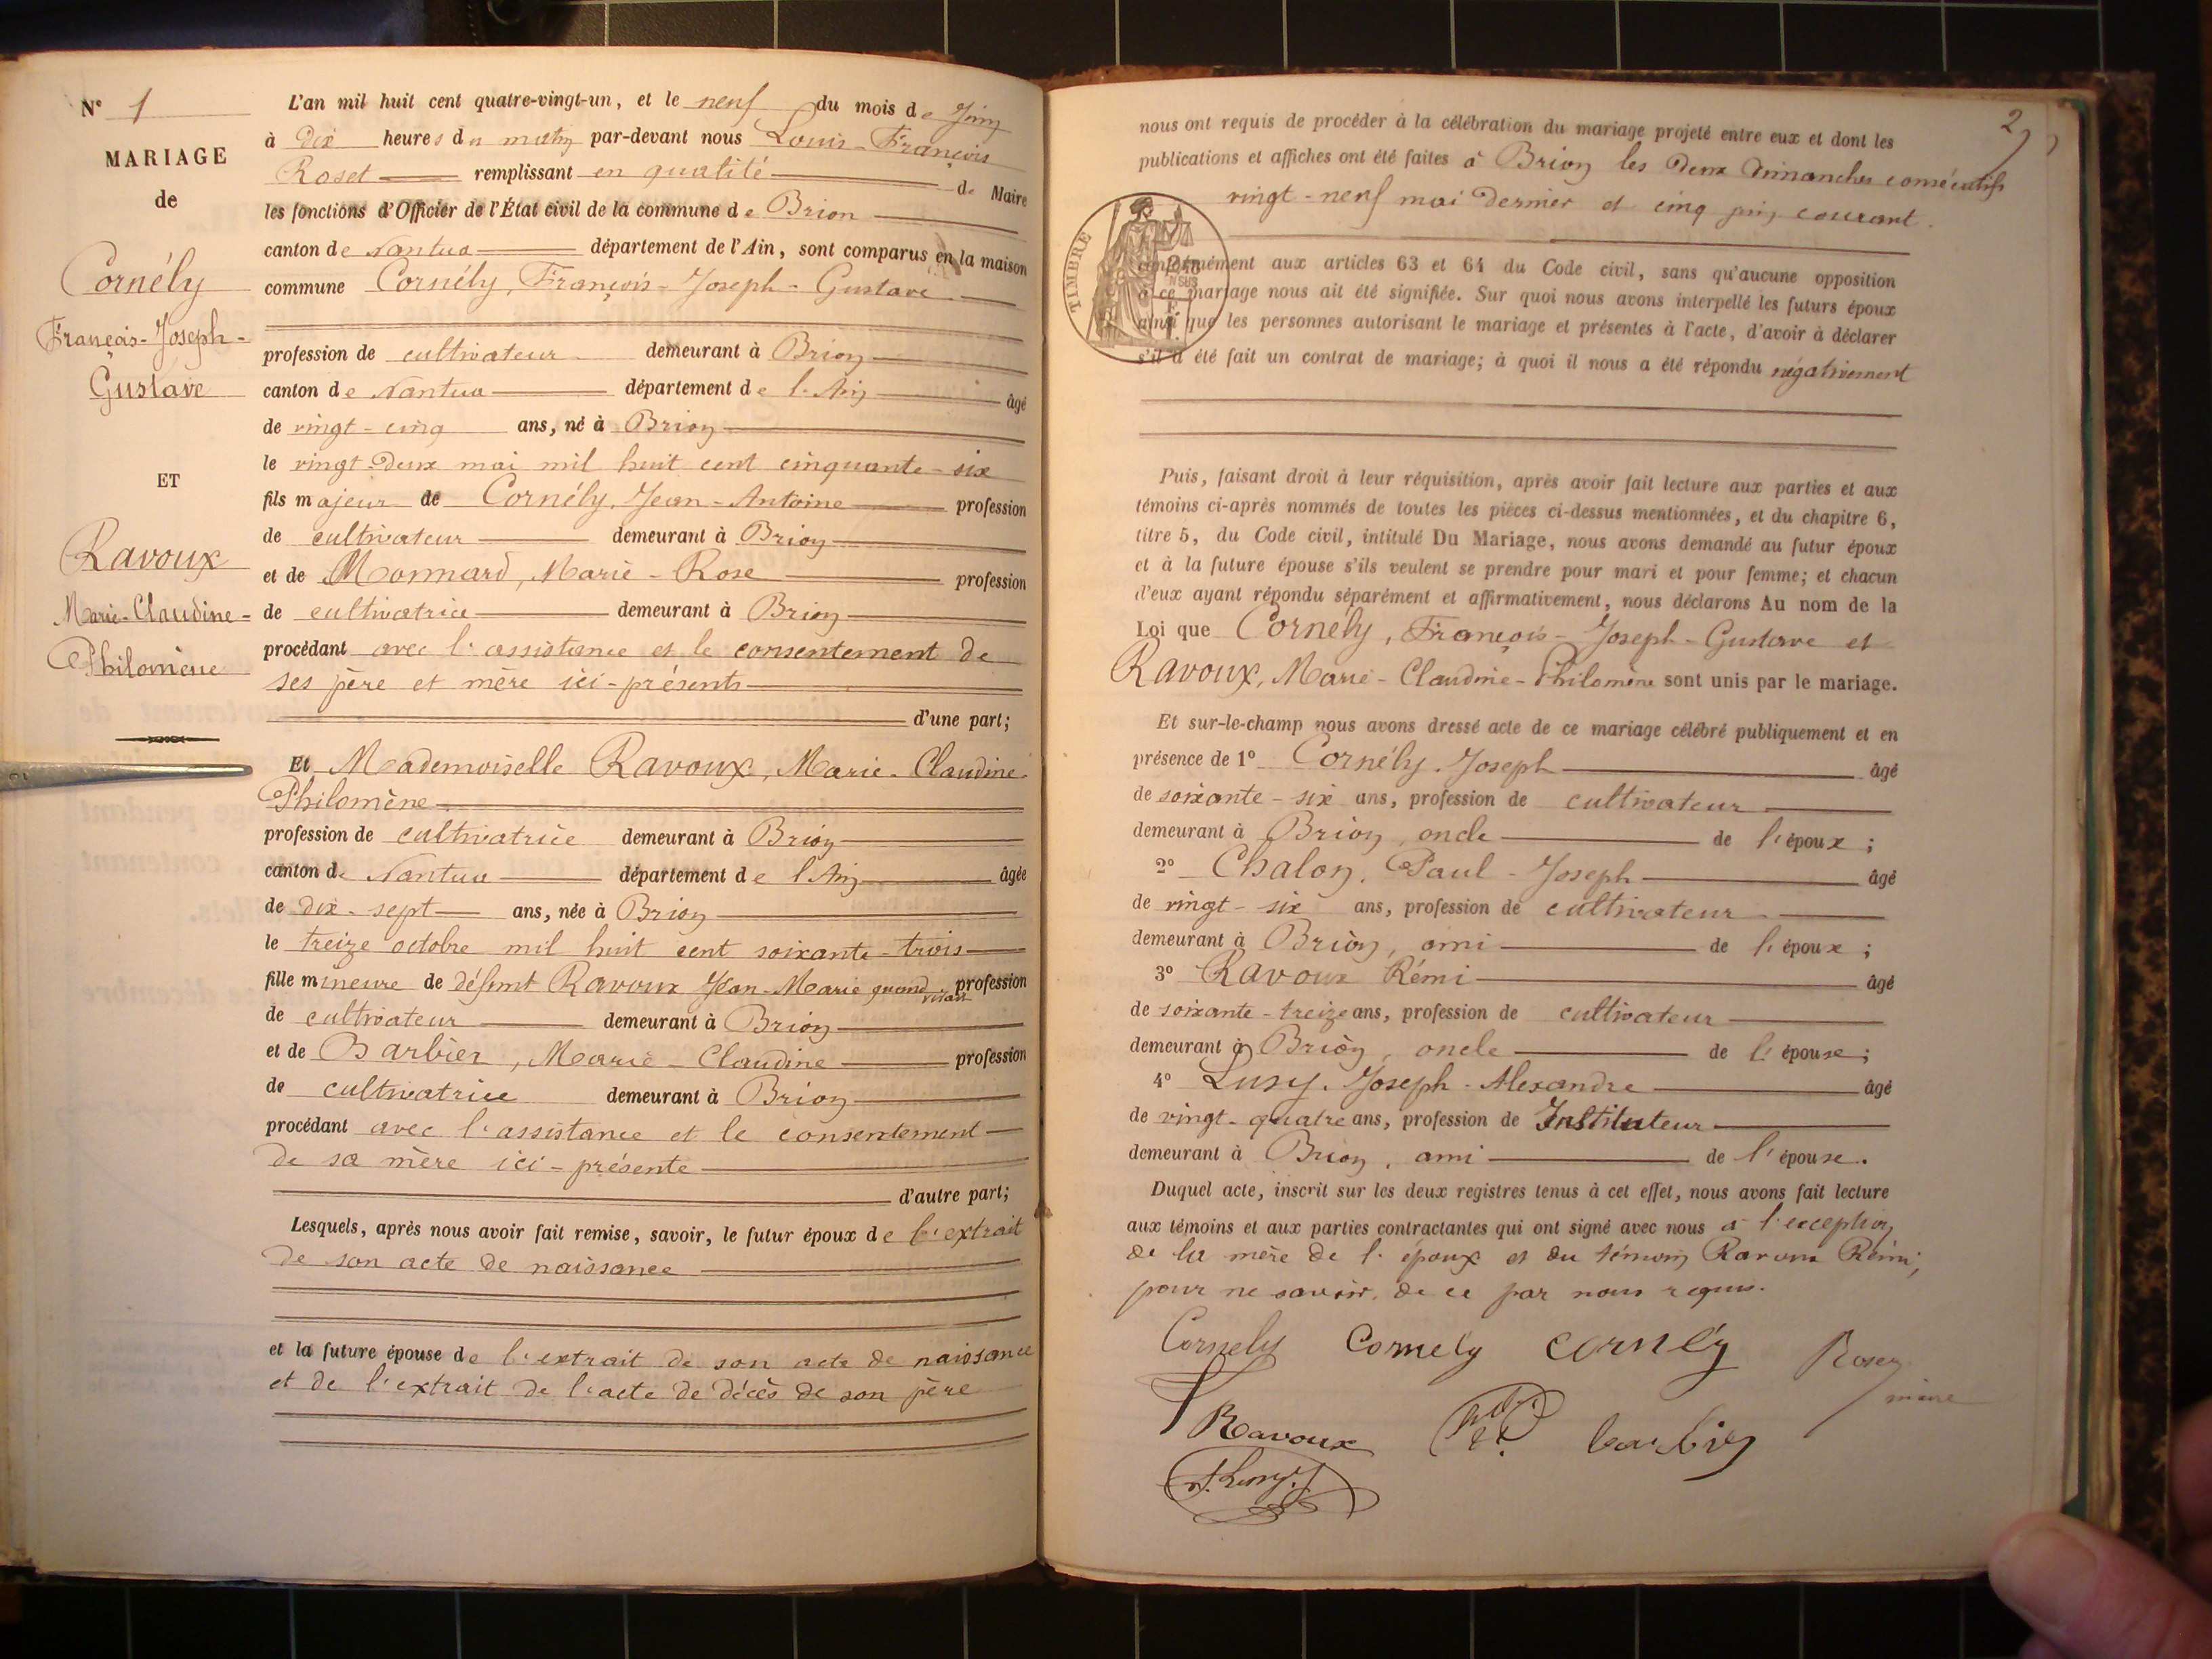 N° 1
MARIAGE
de
Cornély
François-Joseph-
Gustave
ET
Ravoux
Marie-Claudine-
Philomène
L'an mil huit cent quatre-vingt-un, et le neuf du mois de Juin
à dix heures du matin par-devant nous Louis-François
Roset remplissant en qualité de Maire
les fonctions d'Officier de l'État civil de la commune de Brion
canton de Nantua département de l'Ain, sont comparus en la maison
commune Cornély, François-Joseph-Gustave
profession de cultivateur demeurant à Brion
canton de Nantua département de l'Ain âgé
de vingt-cinq ans, né à Brion
le vingt-deux mai mil huit cent cinquante-six
fils majeur de Cornély, Jean-Antoine profession
de cultivateur demeurant à Brion
et de Monnard, Marie-Rose profession
de cultivatrice demeurant à Brion
procédant avec l'assistance et le consentement de
ses père et mère ici-présents
d'une part;
Et Mademoiselle Ravoux, Marie-Claudine-
Philomène
profession de cultivatrice demeurant à Brion
canton de Nantua département de l'Ain âgée
de dix-sept ans, née à Brion
le treize octobre mil huit cent soixante-trois
fille mineure de défunt Ravoux Jean-Marie quand vivait profession
de cultivateur demeurant à Brion
et de Barbier, Marie-Claudine profession
de cultivatrice demeurant à Brion
procédant avec l'assistance et le consentement
de sa mère ici-présente
d'autre part;
Lesquels, après nous avoir fait remise, savoir, le futur époux de l'extrait
de son acte de naissance
et la future épouse de l'extrait de son acte de naissance
et de l'extrait de l'acte de décès de son père
2
nous ont requis de procéder à la célébration du mariage projeté entre eux et dont les
publications et affiches ont été faites à Brion les deux dimanches consécutifs
vingt-neuf mai dernier et cinq juin courant.
TIMBRE
conformément aux articles 63 et 64 du Code civil, sans qu'aucune opposition
à ce mariage nous ait été signifiée. Sur quoi nous avons interpellé les futurs époux
ainsi que les personnes autorisant le mariage et présentes à l'acte, d'avoir à déclarer
s'il a été fait un contrat de mariage; à quoi il nous a été répondu négativement
Puis, faisant droit à leur réquisition, après avoir fait lecture aux parties et aux
témoins ci-après nommés de toutes les pièces ci-dessus mentionnées, et du chapitre 6,
titre 5, du Code civil, intitulé Du Mariage, nous avons demandé au futur époux
et à la future épouse s'ils veulent se prendre pour mari et pour femme; et chacun
d'eux ayant répondu séparément et affirmativement, nous déclarons Au nom de la
Loi que Cornély, François-Joseph-Gustave et
Ravoux, Marie-Claudine-Philomène sont unis par le mariage.
Et sur-le-champ nous avons dressé acte de ce mariage célébré publiquement et en
présence de 1° Cornély. Joseph âgé
de soixante-six ans, profession de cultivateur
demeurant à Brion, oncle de l'époux;
2° Chalon, Paul-Joseph âgé
de vingt-six ans, profession de cultivateur
demeurant à Brion, ami de l'époux;
3° Ravoux Rémi âgé
de soixante-treize ans, profession de cultivateur
demeurant à Brion, oncle de l'épouse;
4° Lusy. Joseph-Alexandre âgé
de vingt-quatre ans, profession de Instituteur
demeurant à Brion, ami de l'épouse.
Duquel acte, inscrit sur les deux registres tenus à cet effet, nous avons fait lecture
aux témoins et aux parties contractantes qui ont signé avec nous à l'exception
de la mère de l'époux et du témoin Ravoux Rémi,
pour ne savoir, de ce par nous requis.
Cornely Cornely cornély Roset
maire
Ravoux barbier
A. Lusy